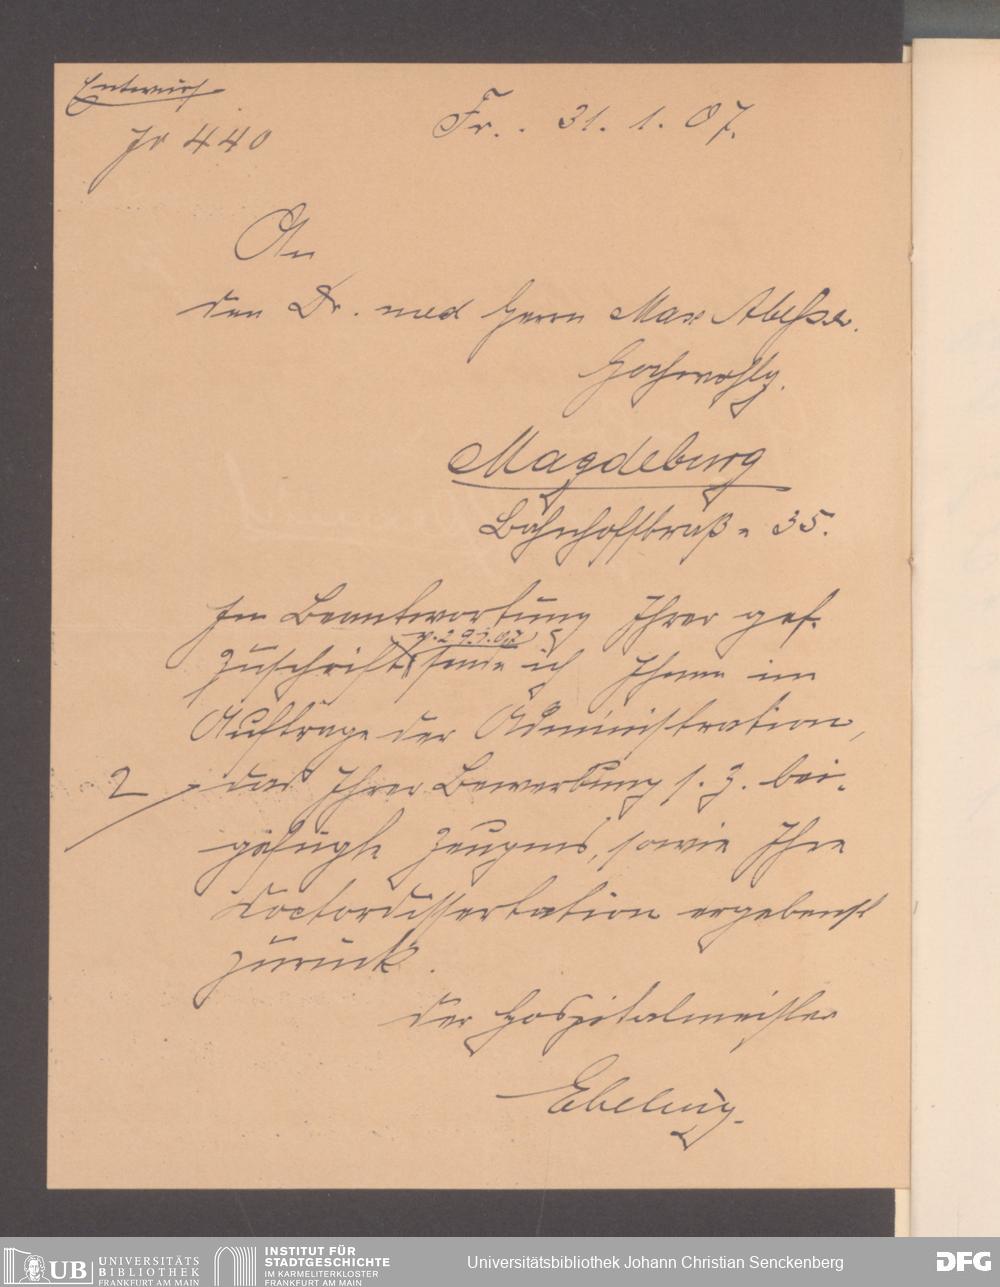 Entwurf
Jr 440
Fr. . 31. 1. 07.
An
den Dr. med Herrn Max
Hochwohlg.
Magdeburg
Bahnhofstraße 35.
In Beantwortung Ihrer gef.
v. 29.1.07
Zuschrift sende ich Ihnen im
Auftrage der Administration,
2
das Ihrer Bewerbung s. Z. bei-
gefügte Zeugnis, sowie Ihre
Doctordissertation ergebenst
zurück.
Der Hospitalmeister
Ebeling.
UB UNIVERSITÄTS
BIBLIOTHEK
FRANKFURT AM MAIN
INSTITUT FÜR
STADTGESCHICHTE
IM KARMELITERKLOSTER
FRANKFURT AM MAIN
Universitätsbibliothek Johann Christian Senckenberg
DFG